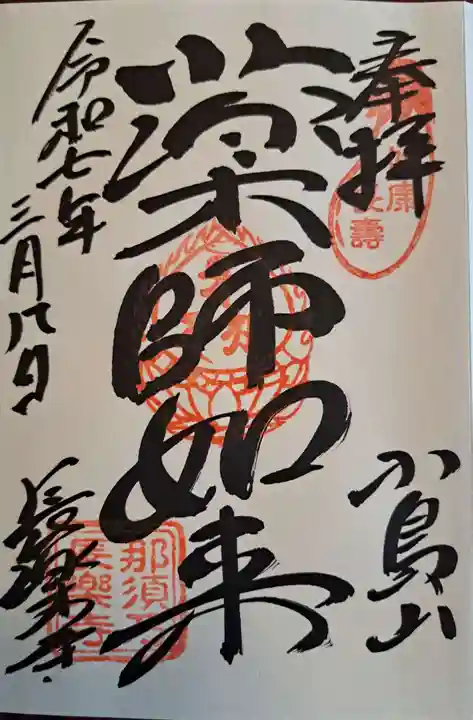 奉拝
小鳥山
薬師如来
令和七年
三月八日
長楽寺
康
長壽
那須
長樂寺